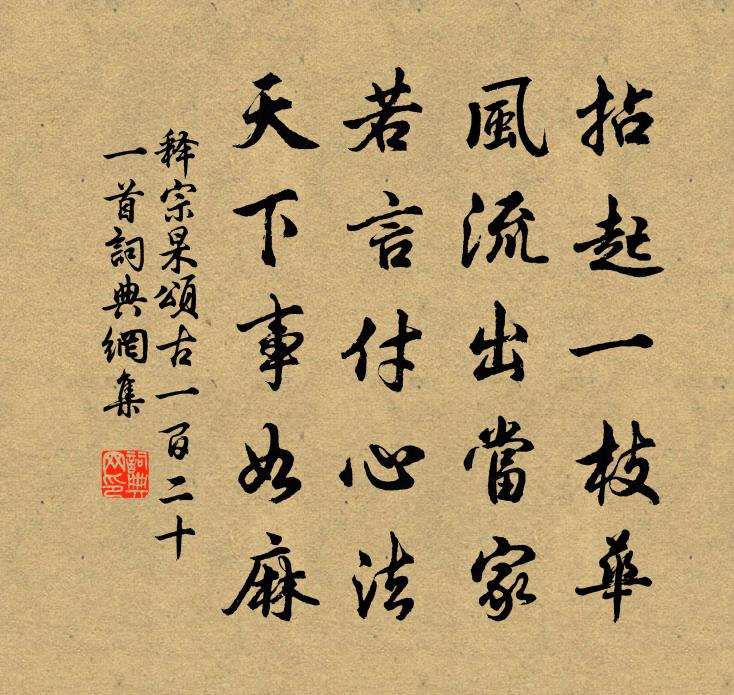 拈起一枝華
風流出當家
若言付心法
天下事如麻
释宗杲頌古一百二十
一首詞典網集
詞典
网印